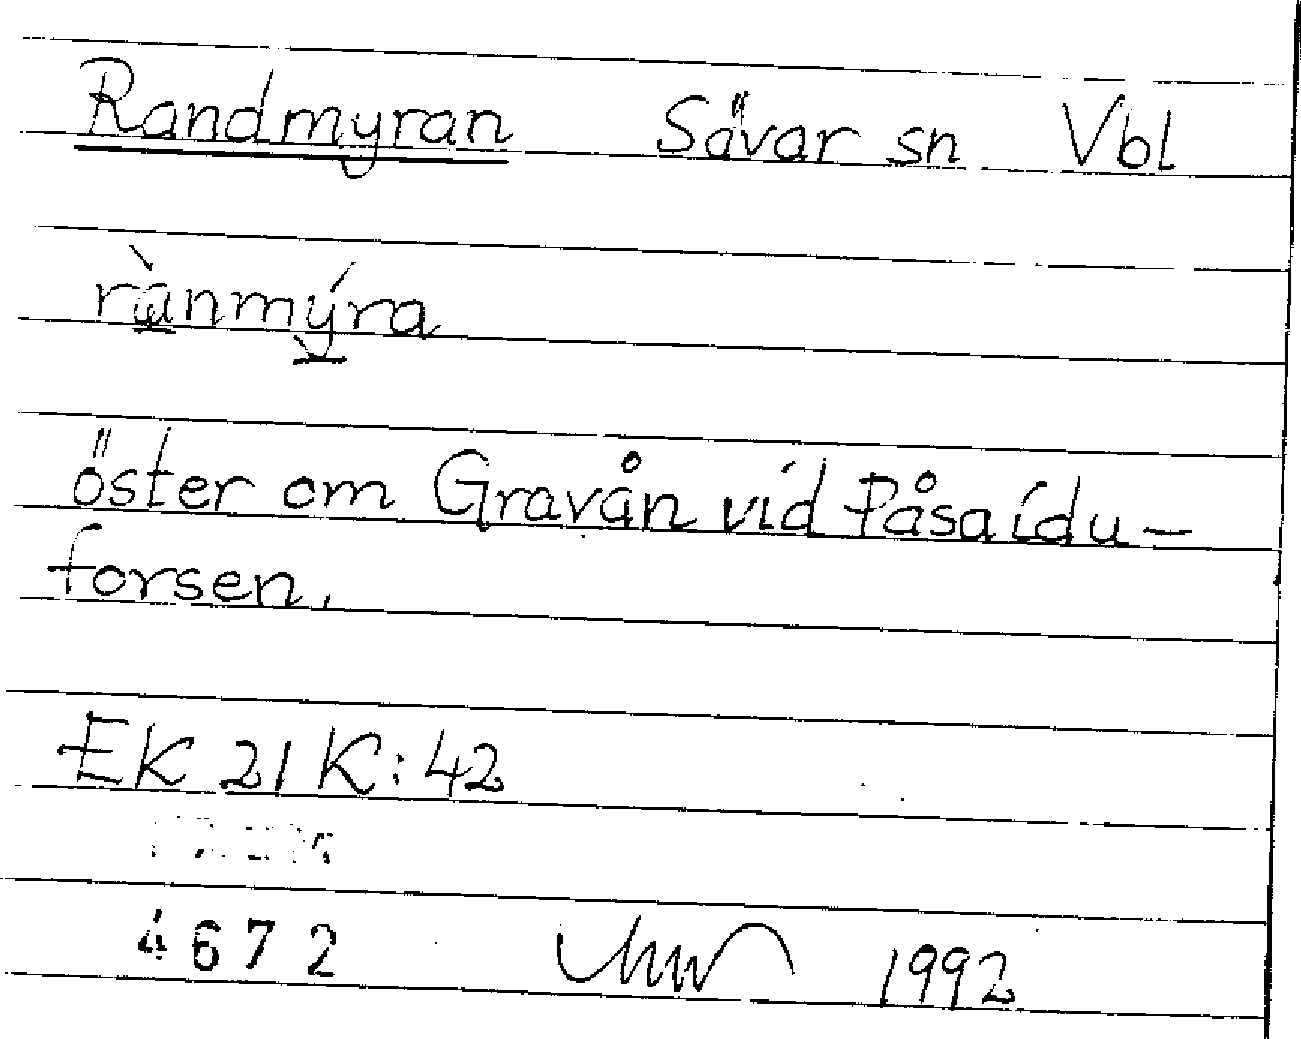 Randmyran Sävar sn Vbl
rànmýra
öster om Gravån vid Påsaídu-
forsen.
EK 21 K:42
4672 1992